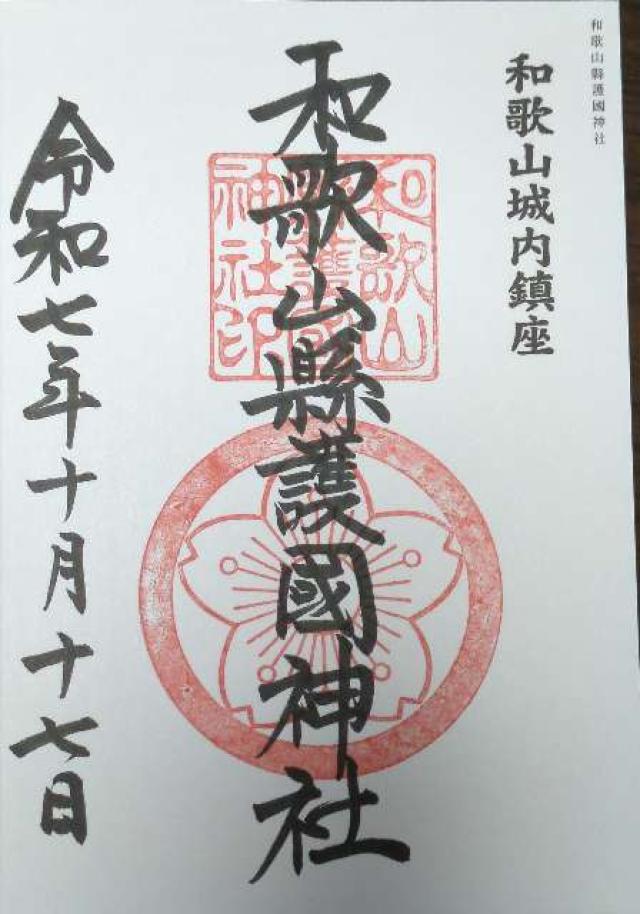 和歌山縣護國神社
和歌山城内鎮座
和歌山縣護國神社
和歌山
縣護國
神社印
令和七年十月十七日